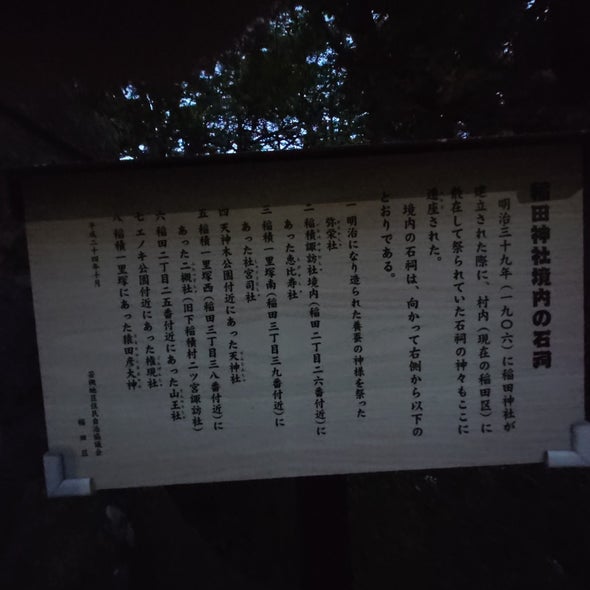 稲田神社境内の石祠
明治三十九年(一九〇六)に稲田神社が
建立された際に、村内(現在の稲田区)に
散在して祭られていた石祠の神々もここに
遷座された。
境内の石祠は、向かって右側から以下の
とおりである。
一 明治になり造られた養蚕の神様を祭った
弥栄社
二 稲積諏訪社境内(稲田二丁目二六番付近)に
あった恵比寿社
三 稲積一里塚南(稲田三丁目三九番付近)に
あった社宮司社
四 天神木公園付近にあった天神社
五 稲積一里塚西(稲田三丁目三八番付近)に
あった二槻社(旧下稲積村二ツ宮諏訪社)
六 稲田二丁目二五番付近にあった山王社
七 エノキ公園付近にあった権現社
八 稲積一里塚にあった猿田彦大神
平成二十四年十月
若槻地区住民自治協議会
稲田区